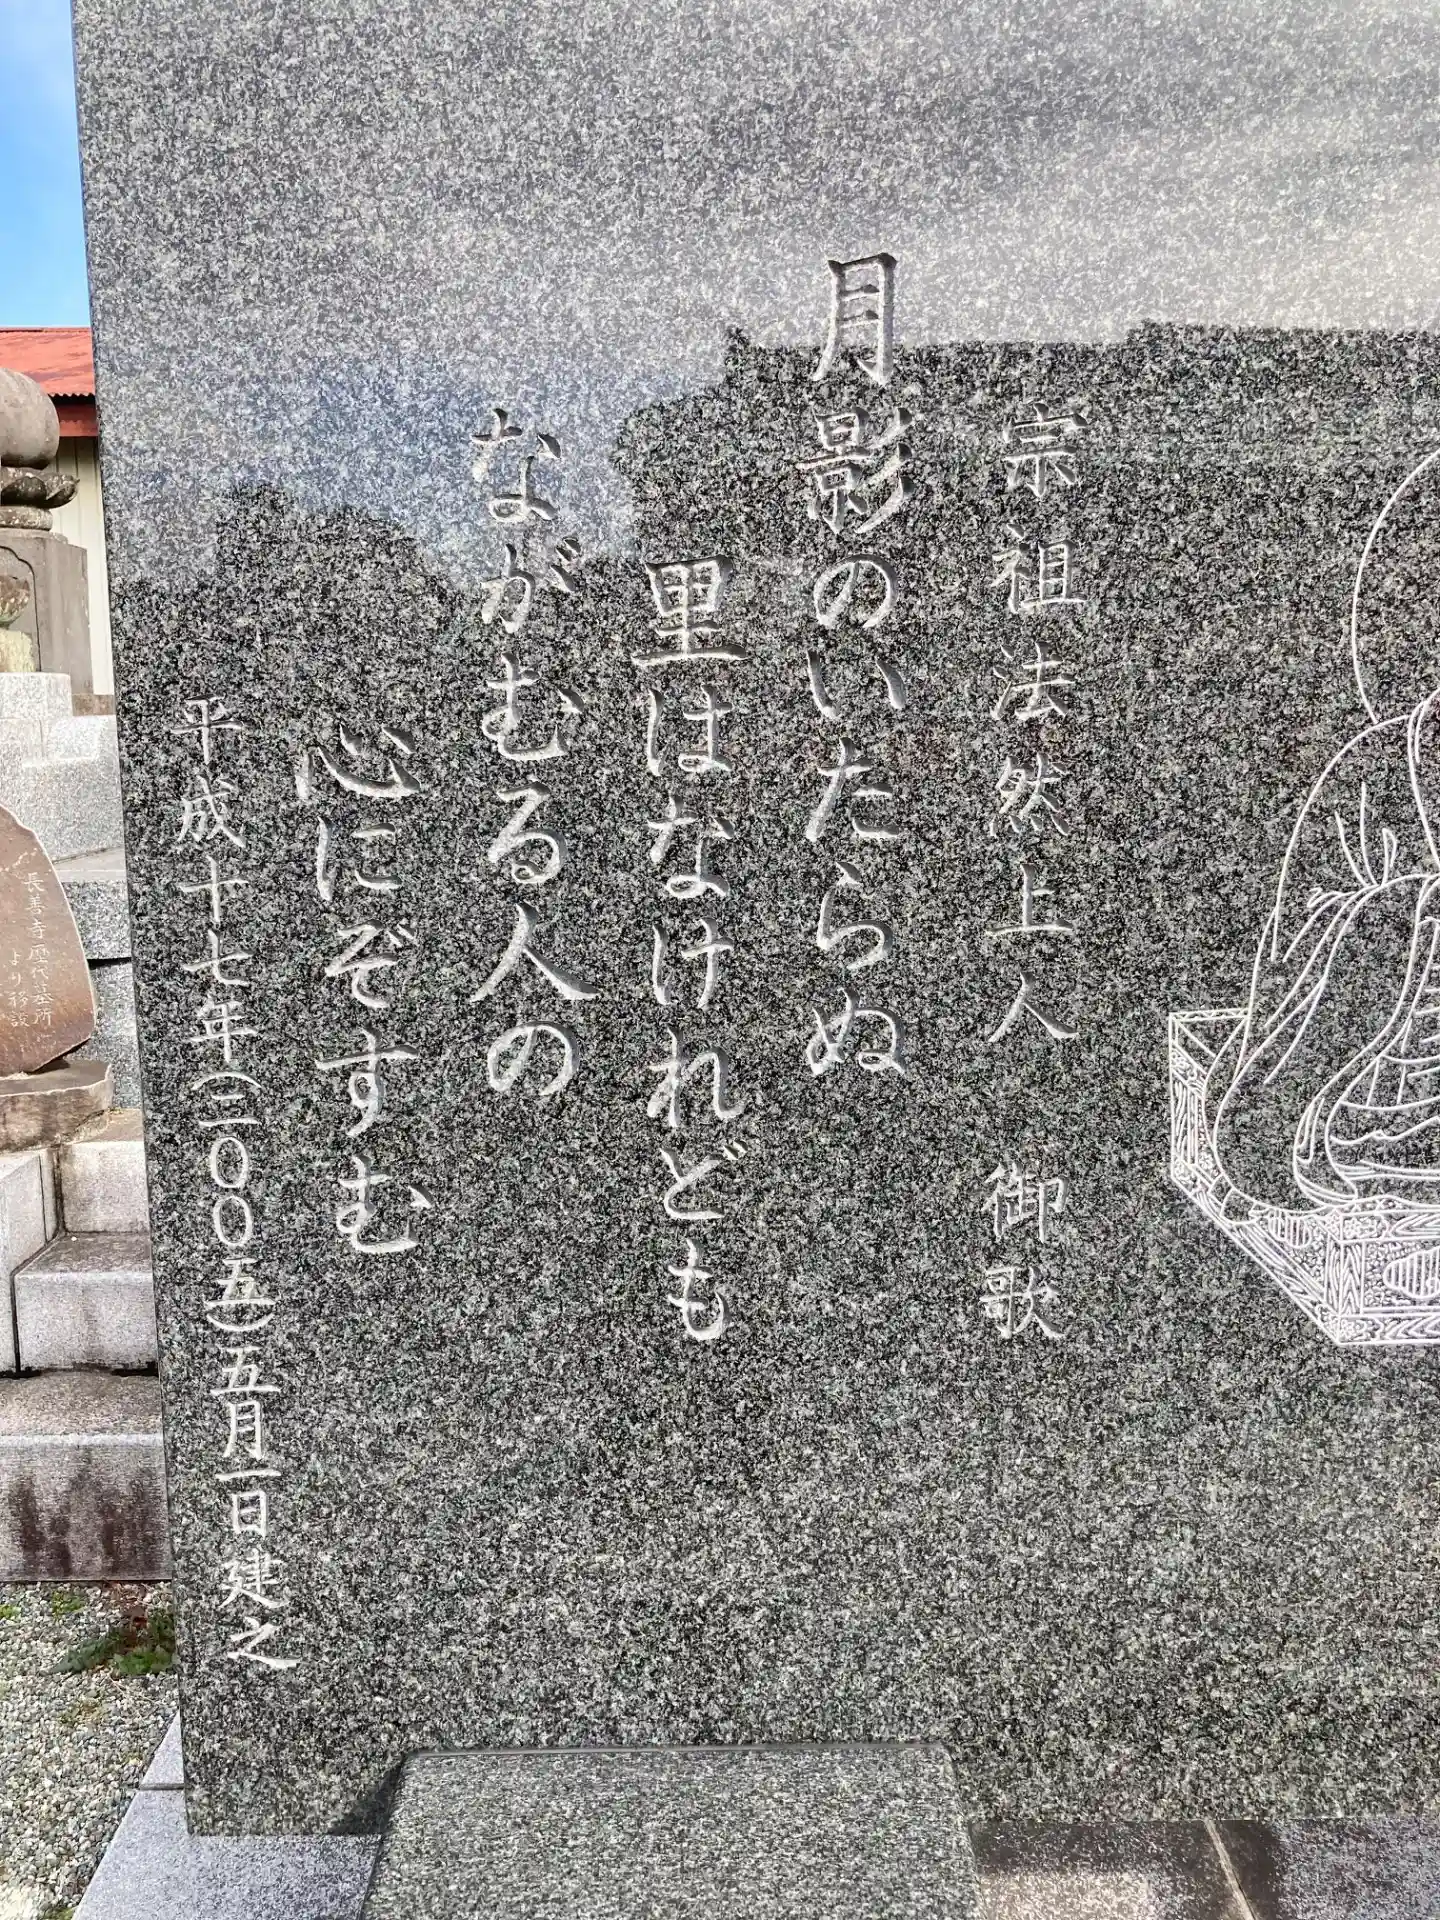 宗祖法然上人 御歌
月影のいたらぬ
里はなけれども
ながむる人の
心にぞすむ
平成十七年(二〇〇五)五月一日建之
長善寺歴代墓所
より移設